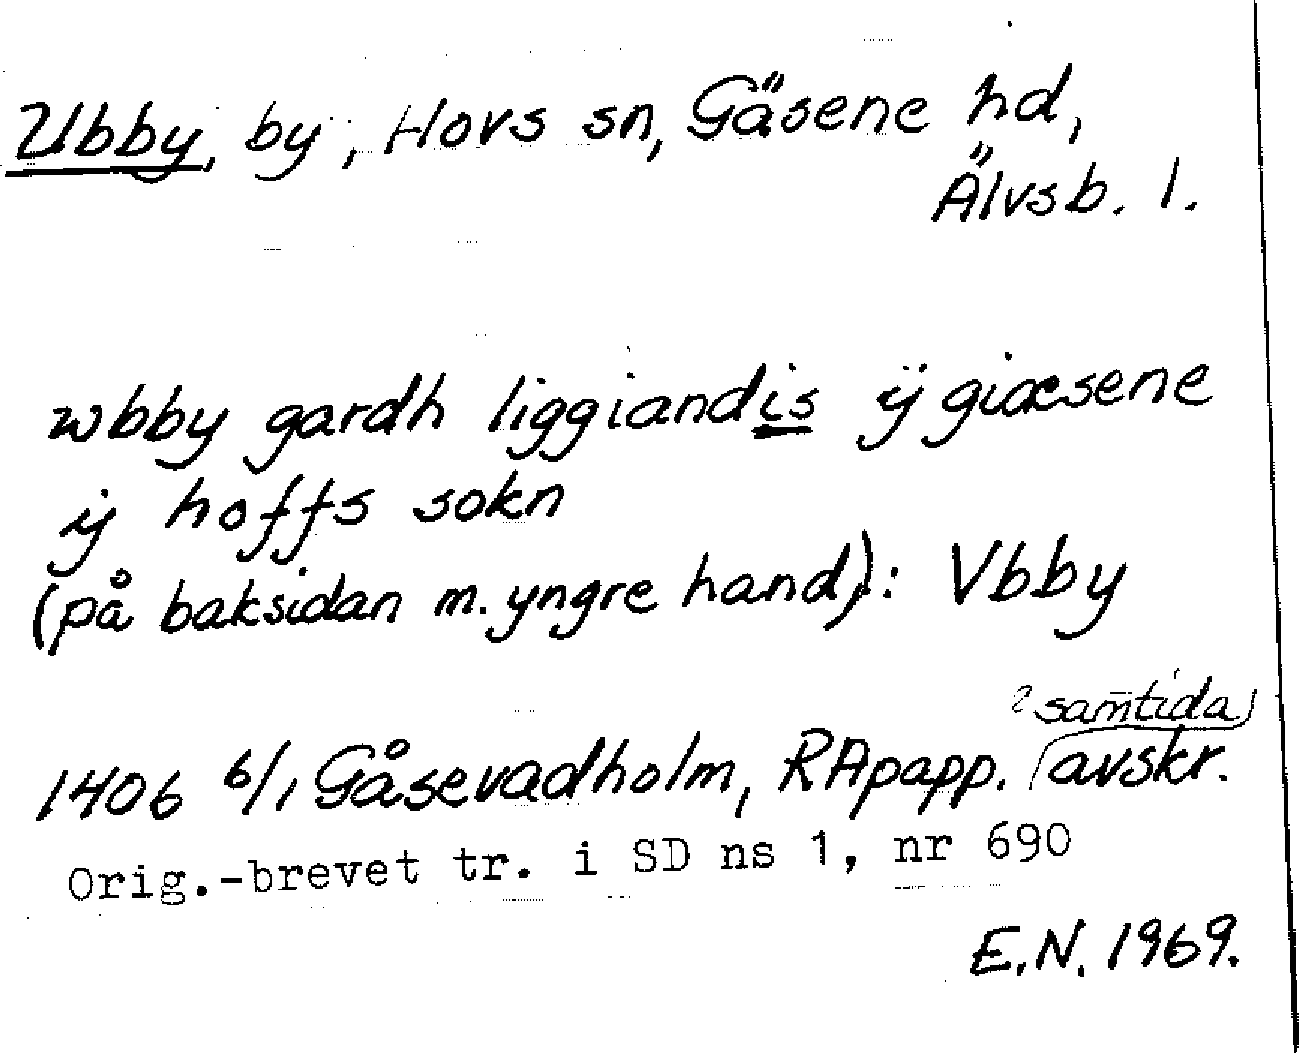 Ubby, by, Hovs sn, Gäsene hd,
Älvsb. l.
wbby gardh liggiandis ÿ giæsene
ÿ hoffs sokn
(på baksidan m. yngre hand): Vbby
? samtida
1406 6/1 Gåsevadholm, RApapp. avskr.
Orig.-brevet tr. i SD ns 1, nr 690
E.N. 1969.